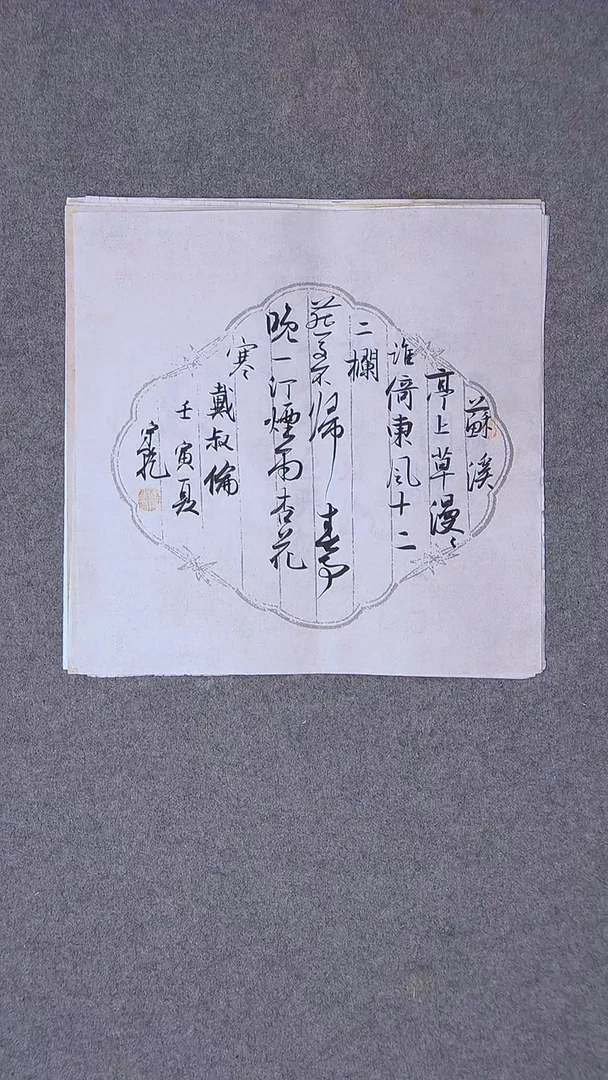 蘇溪
亭上草漫〻
誰倚東風十二
二欄
燕子不歸春事
晚一汀煙雨杏花
寒
戴叔倫
壬寅夏
守乾